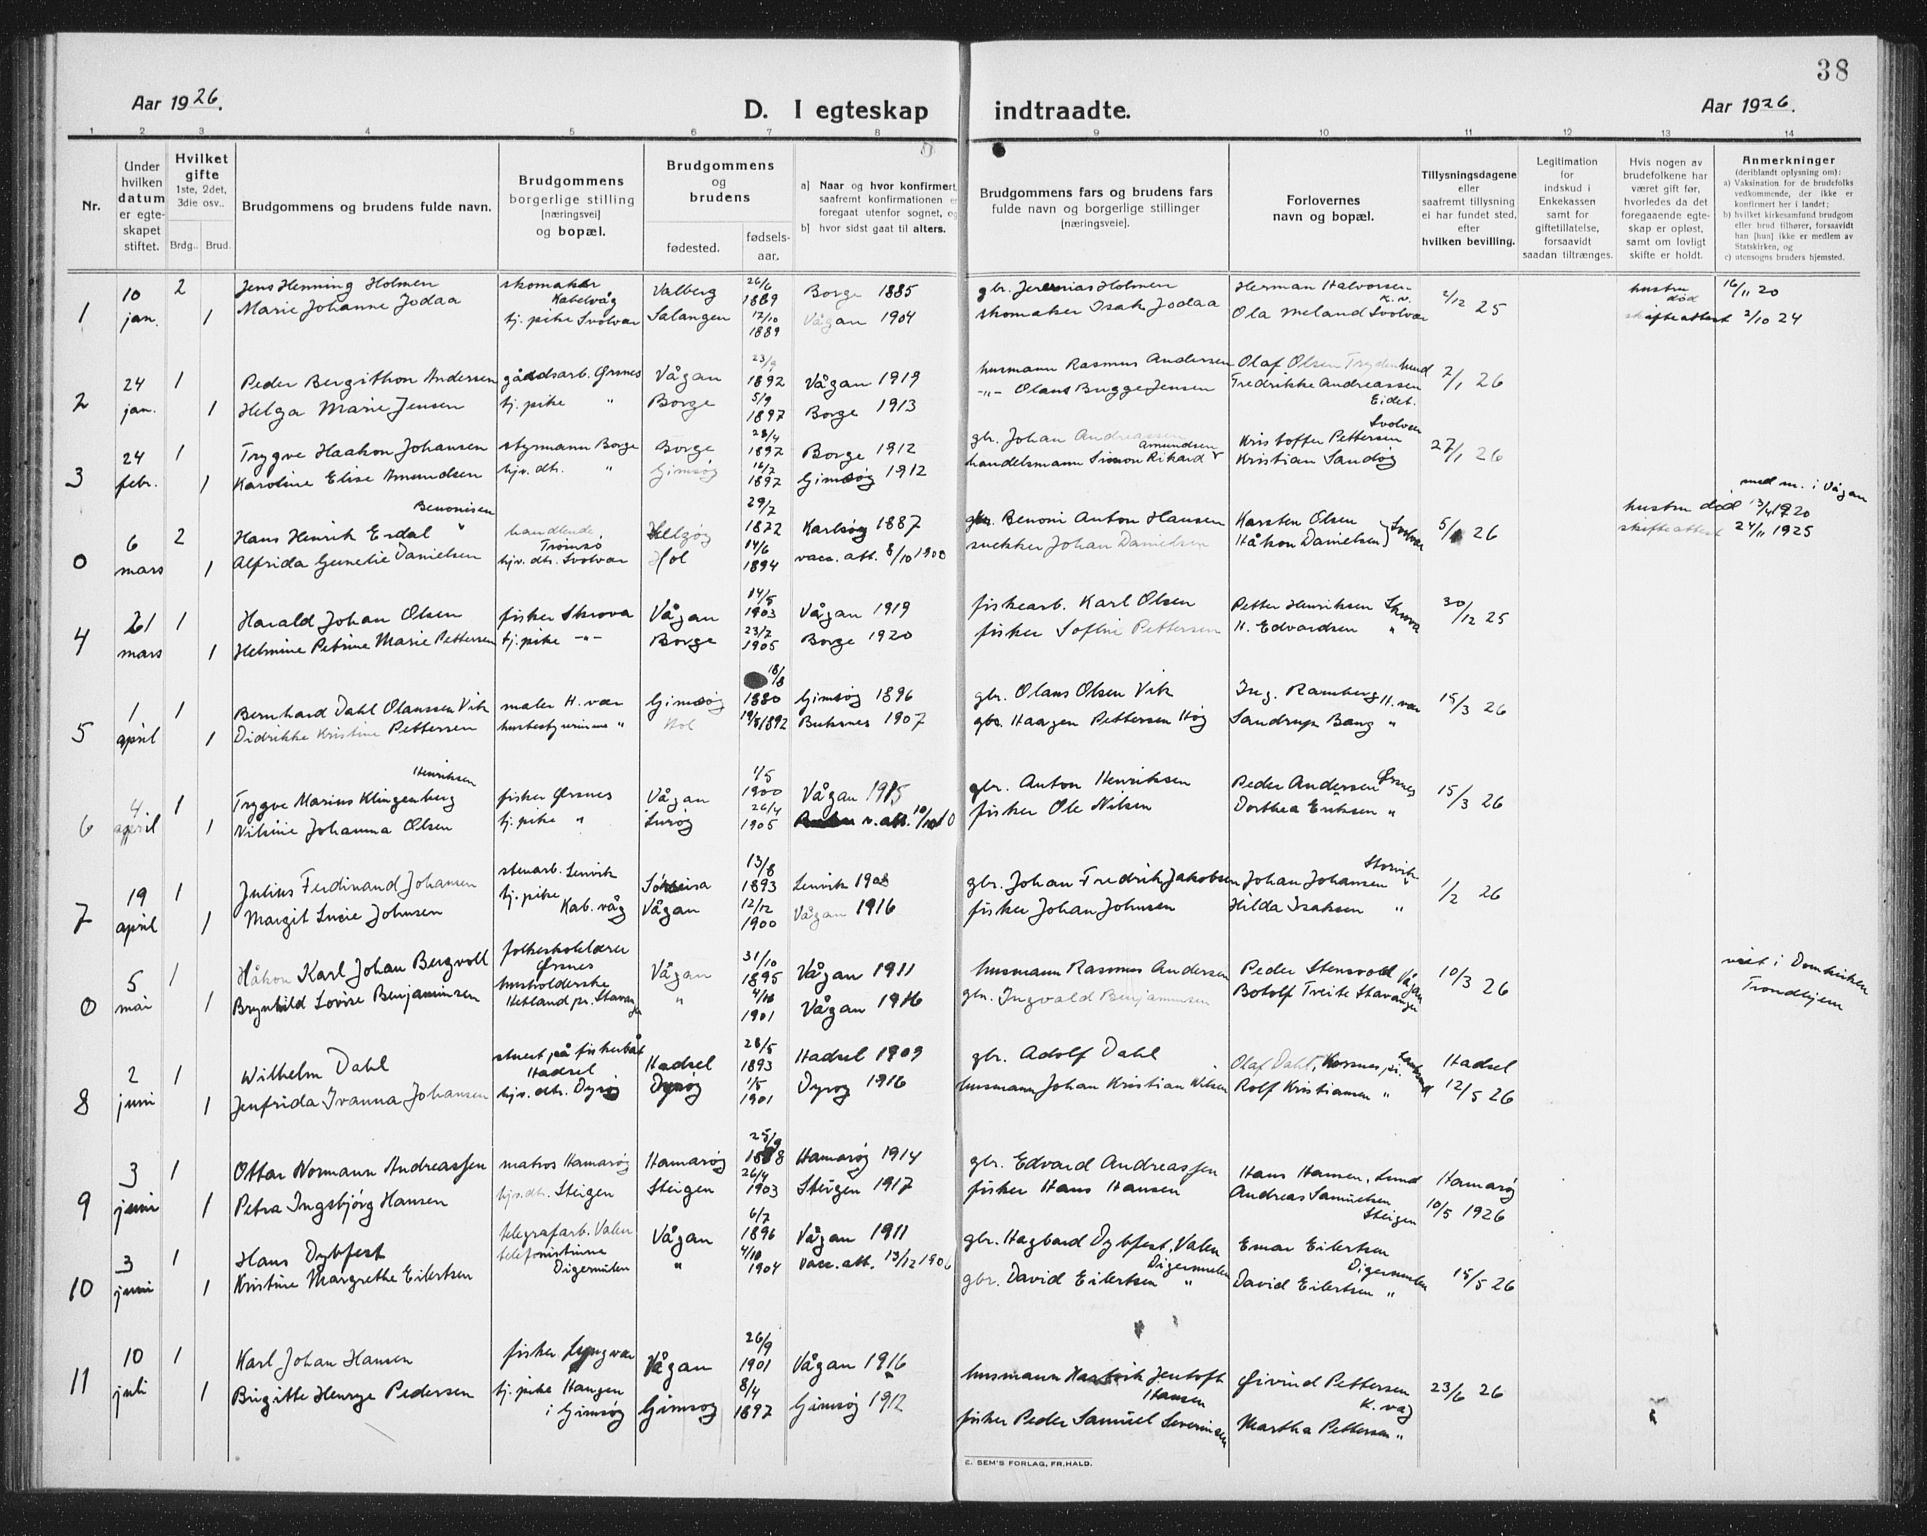 38
Aar 1926.
D. I egteskap indtraadte.
Aar 1926.
1 2 3 4 5 6 7 8 9 10 11 12 13 14
Nr.
Under hvilken datum er egteskapet stiftet.
Hvilket gifte 1ste, 2det, 3die osv..
Brdg.. Brud.
Brudgommens og brudens fulde navn.
Brudgommens borgerlige stilling [næringsvei] og bopæl.
Brudgommens og brudens
fødested. fødsels-aar.
a] Naar og hvor konfirmert, saafremt konfirmationen er foregaat utenfor sognet, og
b] hvor sidst gaat til alters.
Brudgommens fars og brudens fars fulde navn og borgerlige stillinger [næringsveie].
Forlovernes navn og bopæl.
Tillysningsdagene eller saafremt tillysning ei har fundet sted, efter hvilken bevilling.
Legitimation for indskud i Enkekassen samt for giftetillatelse, forsaavidt saadan tiltrænges.
Hvis nogen av brudefolkene har været gift før, hvorledes da det foregaaende egteskap er opløst, samt om lovligt skifte er holdt.
Anmerkninger (deriblandt oplysning om):
a) Vaksination for de brudefolks vedkommende, der ikke er konfirmert her i landet;
b) hvilket kirkesamfund brudgom eller brud tilhører, forsaavidt han [hun] ikke er medlem av Statskirken, og
c) utensogns bruders hjemsted.
1 10 jan. 2 Jens Henning Holmen skomaker Kabelvåg Valberg 26/6 1869 Borge 1885 gbr. Jeremias Holmen Herman Halvorsen K.v. 2/12 25 hustru død 16/11 20
1 Marie Johanne Jodaa tj. pike Svolvær Salangen 17/10 1889 Vågan 1904 skomaker Isak Jodaa Ola Meland Svolvær skifteattest 2/10 24
2 24 jan. 1 Peder Bergithon Andersen gårdsarb. Ørsnes Vågan 23/9 1892 Vågan 1919 husmann Rasmus Andersen Olaf Olsen 2/1 26
1 Helga Marie Jensen tj. pike " Borge 5/9 1897 Borge 1913 -"- Olaus Bugge Jensen Fredrikke Andreassen Eidet.
3 24 febr. 1 Trygve Haakon Johansen styrmann Borge Borge 28/4 1892 Borge 1912 gbr. Johan Andreassen Kristoffer Pettersen Svolvær 27/1 26
1 Karoline Elise Amundsen hjv. dtr. " Gimsøy 16/7 1897 Gimsøy 1912 handelsmann Simon Rikard Amundsen Kristian Sandøy
med m. i Vågan
0 6 mars 2 Hans Henrik Esdal Benonisen handlende Tromsø Helgøy 29/7 1872 Karlsøy 1887 gbr. Benoni Anton Hansen Karsten Olsen 5/1 26 hustru død 13/4 1920
1 Alfrida Gunelie Danielsen hjv. dtr. Svolvær Hol 14/6 1894 vacc. att. 8/10 1900 snekker Johan Danielsen Håkon Danielsen Svolvær skifteattest 24/11 1925
4 21 mars 1 Harald Johan Olsen fisker Skrova Vågan 14/5 1903 Vågan 1919 fiskearb. Karl Olsen Petter Henriksen Skrova 30/12 25
1 Helmine Petrine Marie Pettersen tj. pike -"- Borge 23/2 1905 Borge 1920 fisker Sofus Pettersen H. Edvardsen "
5 1 april 1 Bernhard Dahl Olaussen Vik maler H. vær Gimsøy 18/8 1880 Gimsøy 1896 gbr. Olaus Olsen Vik Ing. Ramberg H. vær 15/3 26
1 Didrikke Kristine Pettersen husbestyrerinne " Hol 19/8 1892 Buksnes 1907 gbr. Haagen Pettersen Høg Sandrup Bang "
6 4 april 1 Trygve Marius Klingenberg Henriksen fisker Ørsnes Vågan 1/5 1900 Vågan 1915 gbr. Anton Henriksen Peder Andersen Ørsnes 15/3 26
1 Nilsine Johanna Olsen tj. pike " Lurøy 26/4 1905 v. att. 10/10 10 fisker Ole Nilsen Dorthea Eriksen "
7 19 april 1 Julius Ferdinand Johansen stenarb. Lenvik Sørreisa 13/8 1893 Lenvik 1908 gbr. Johan Fredrik Jakobsen Johan Johansen Storvik 1/2 26
1 Margit Lucie Johnsen tj. pike Kab. våg Vågan 12/12 1900 Vågan 1916 fisker Johan Johnsen Hilda Isaksen "
0 5 mai 1 Håkon Karl Johan Bergvoll folkeskolelærer Ørsnes Vågan 31/10 1895 Vågan 1911 husmann Rasmus Andersen Peder Stensvold Vågan 10/3 26 viet i Domkirken Trondhjem
1 Brynhild Lovise Benjaminsen husholderske Hetland pr. Stavanger " 4/10 1901 Vågan 1916 gbr. Ingvald Benjaminsen Botolf Treite Stavanger
8 2 juni 1 Wilhelm Dahl stuert på fiskerbåt Hadsel Hadsel 28/5 1893 Hadsel 1909 gbr. Adolf Dahl Olaf Dahl, Hadsel
1 Jenfrida Ivanna Johansen hjv. dtr. Dyrøy Dyrøy 1/5 1901 Dyrøy 1916 husmann Johan Kristian Nilsen Rolf Kristiansen " 12/5 26
9 3 juni 1 Ottar Normann Andreassen matros Hamarøy Hamarøy 25/9 1898 Hamarøy 1914 gbr. Edvard Andreassen Hans Hansen, Lund Hamarøy
1 Petra Ingebjørg Hansen hjv. dtr. Steigen Steigen 26/4 1903 Steigen 1917 fisker Hans Hansen Andreas Samuelsen Steigen 10/5 1926
10 3 juni 1 Hans Dybfest telegrafarb. Valen Vågan 6/7 1896 Vågan 1911 gbr. Hagbard Dybfest, Valen Einar Eilertsen Digermulen 15/5 26
1 Kristine Margrethe Eilertsen telefonistinne Digermulen " 4/10 1904 Vacc. att. 13/12 1906 gbr. David Eilertsen Digermulen " David Eilertsen "
11 10 juli 1 Karl Johan Hansen fisker Lyngvær Vågan 26/9 1901 Vågan 1916 husmann Hartvik Jentoft Hansen Øivind Pettersen K. våg 23/6 26
1 Birgitte Henrye Pedersen tj. pike Haugen i Gimsøy Gimsøy 8/4 1897 Gimsøy 1912 fisker Peder Samuel Severinsen Martha Pettersen "
E. SEM'S FORLAG, FR.HALD.